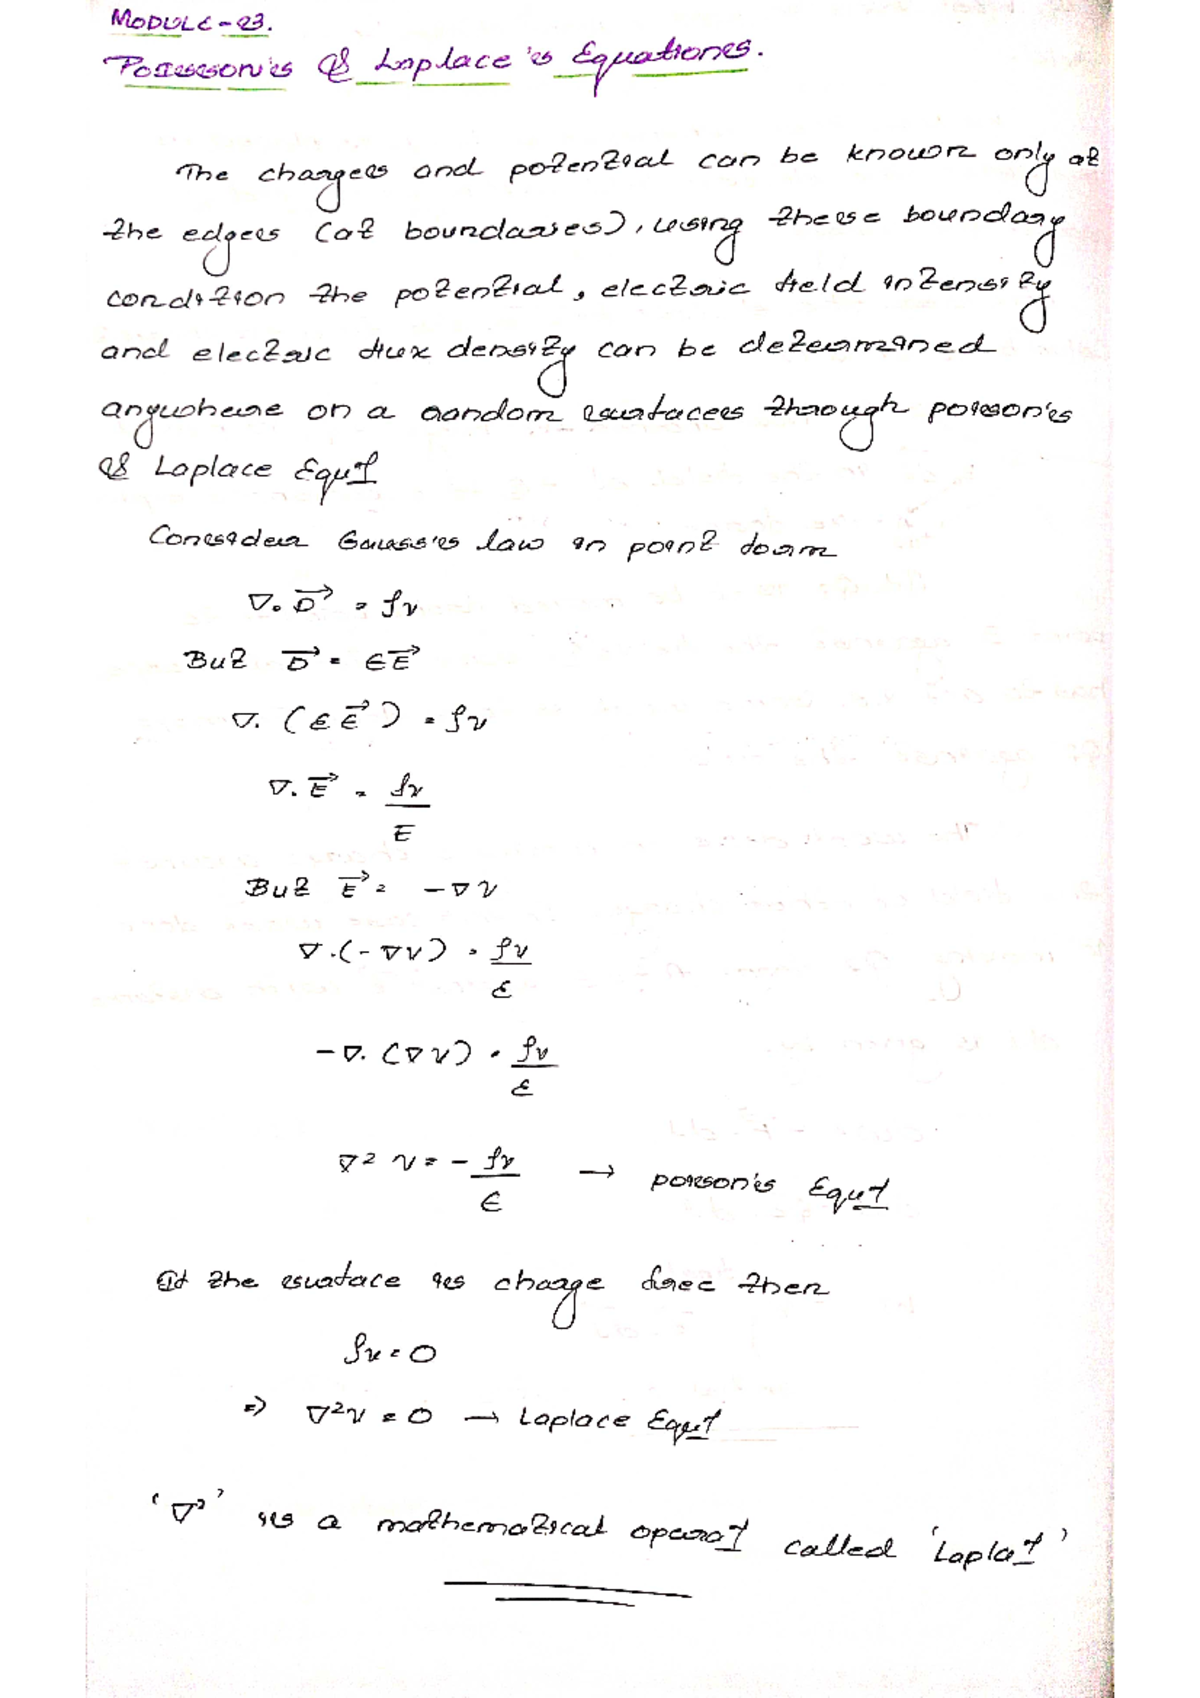 MODULE-23.
Poisson's & Laplace's Equations.
The charges and potential can be known only at
the edges (at boundaries), using these boundary
condition the potential, electric field intensity
and electric flux density can be determined
anywhere on a random surfaces through poisson's
& Laplace Equⁿ
Consider Gauss's law in point form
∇. D⃗ = ρv
But D⃗ = ϵE⃗
∇. (ϵE⃗) = ρv
∇. E⃗ = ρv / ϵ
But E⃗ = -∇V
∇.(-∇V) = ρv / ε
-∇. (∇V) = ρv / ε
∇² V = - ρv / ϵ → poison's Equⁿ
If the surface is charge free then
ρv = 0
⇒ ∇²V = 0 → Laplace Equⁿ
'∇²' is a mathematical operatⁿ called 'Laplaⁿ'